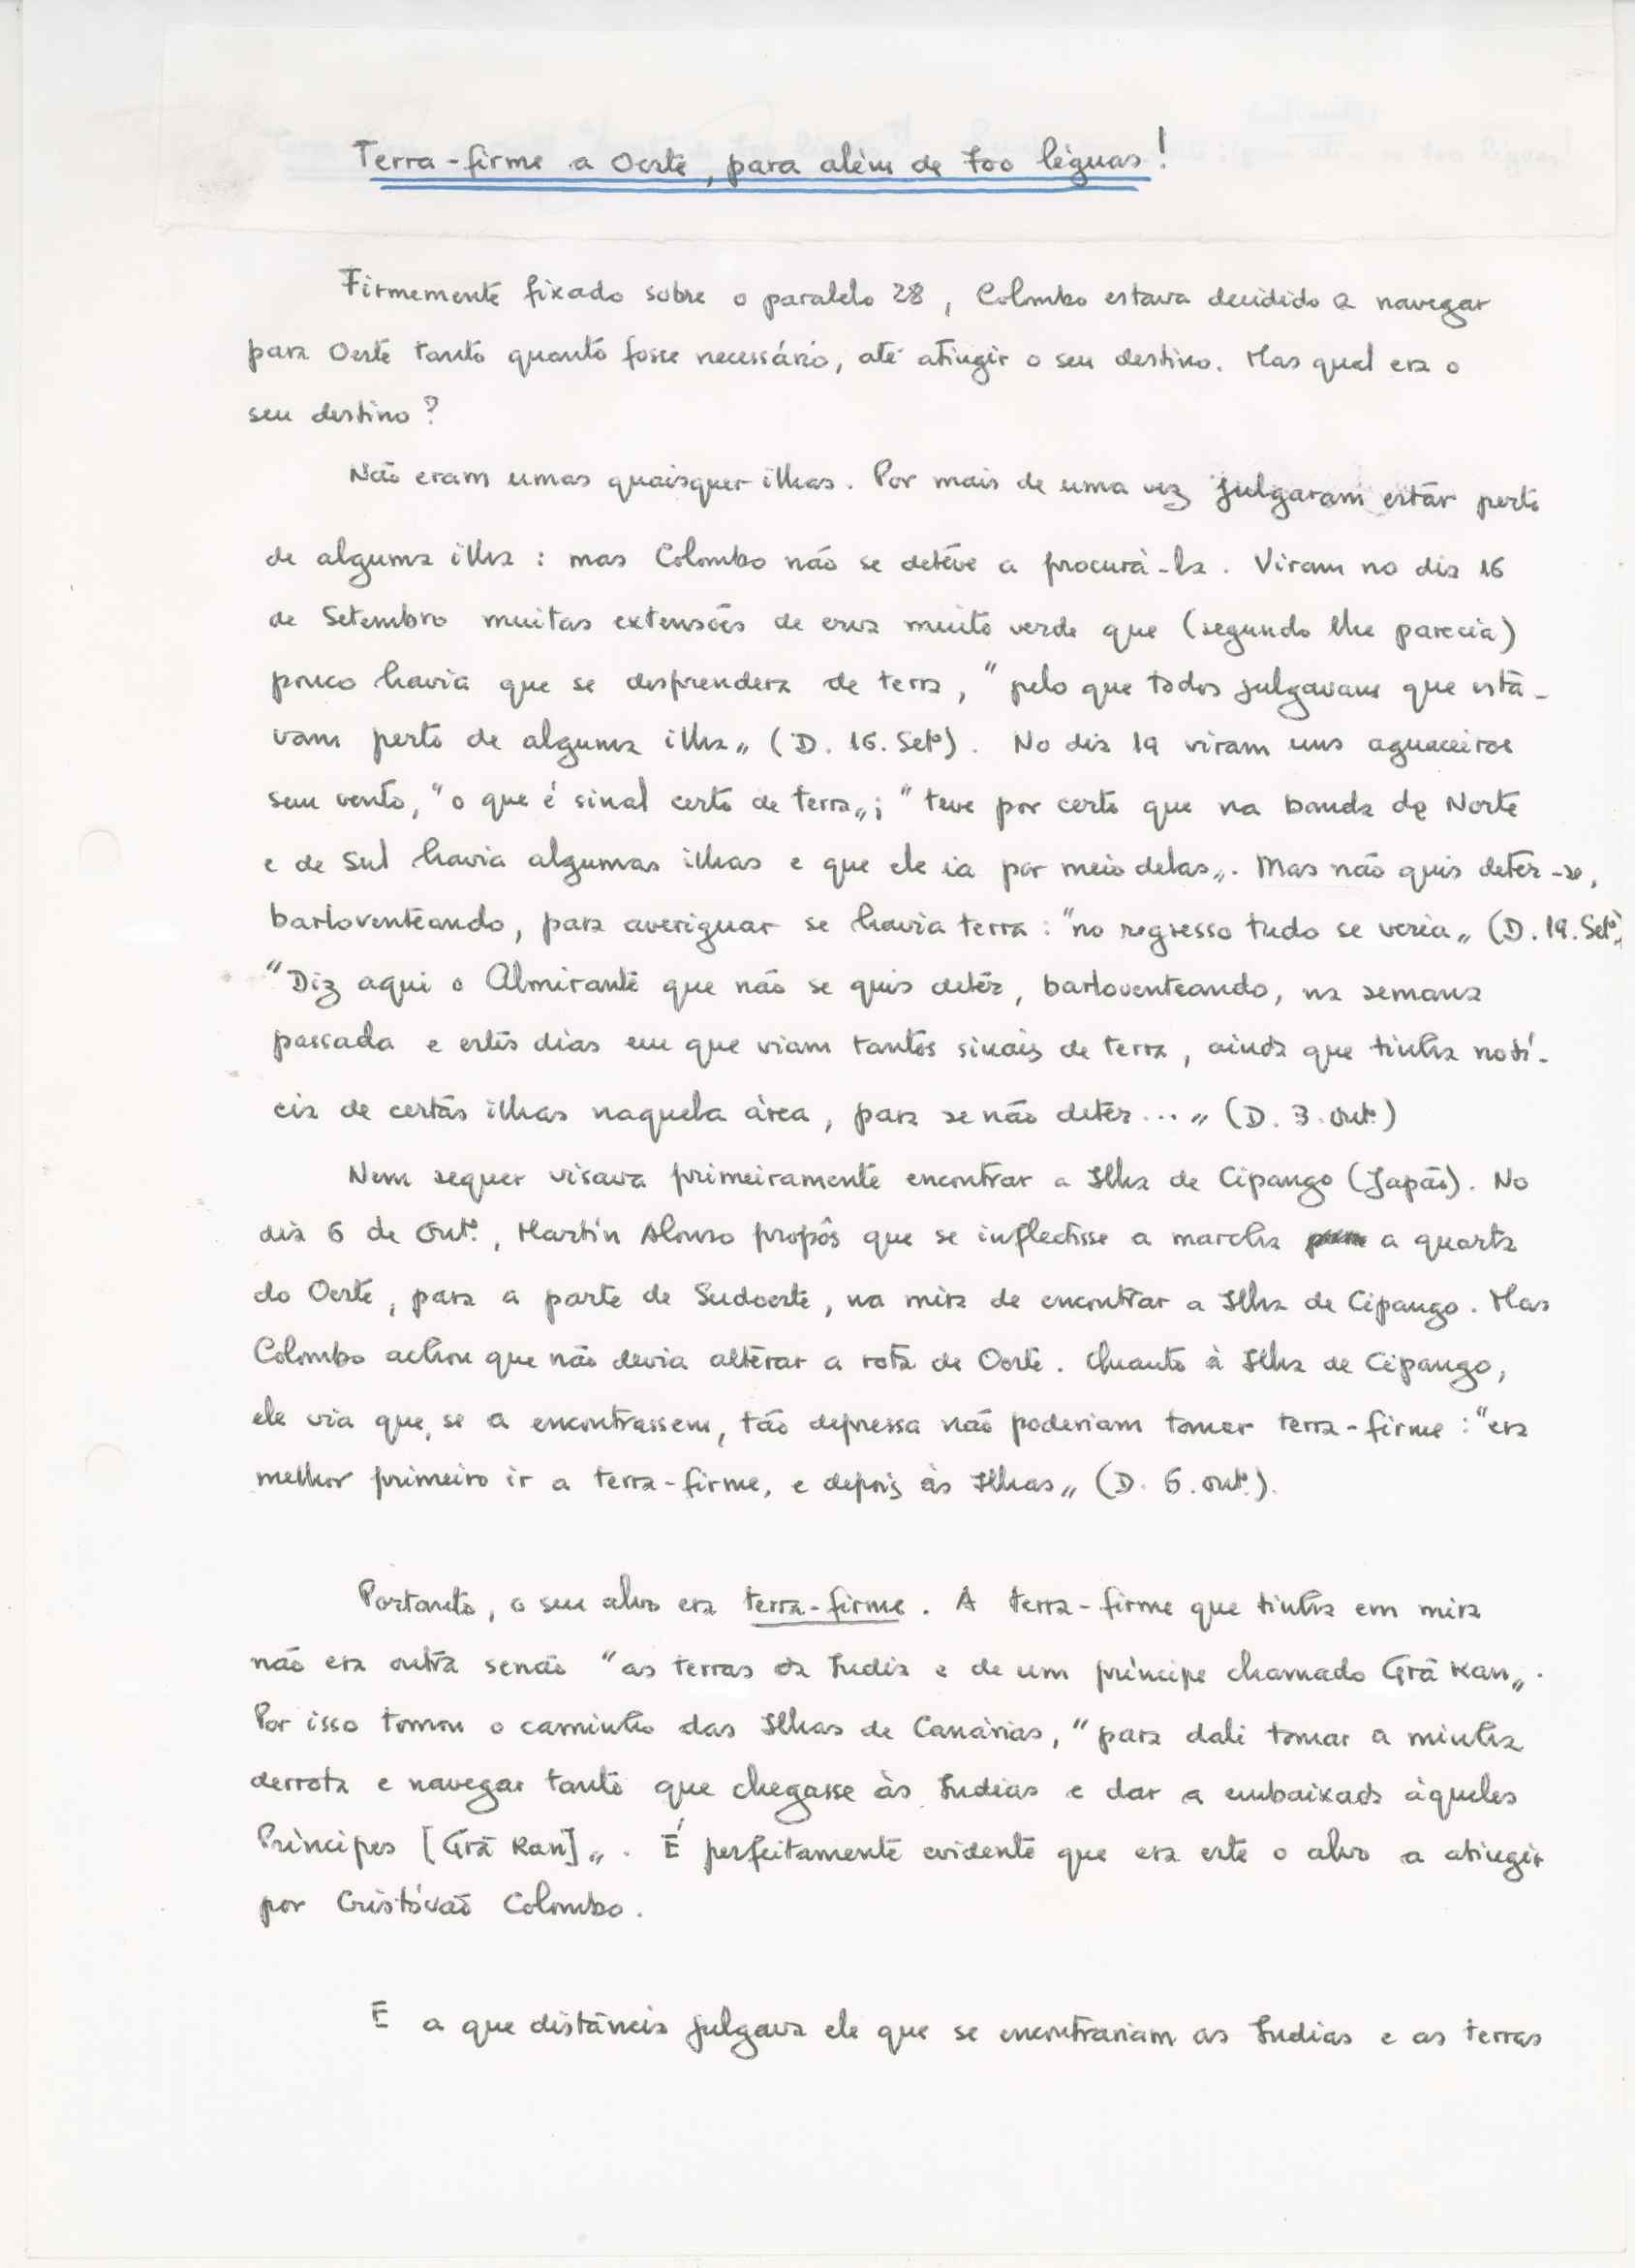 Terra-firme a Oeste, para além de 700 léguas!
Firmemente fixado sobre o paralelo 28, Colombo estava decidido a navegar
para Oeste tanto quanto fosse necessário, até atingir o seu destino. Mas qual era o
seu destino?
Não eram umas quaisquer ilhas. Por mais de uma vez julgaram estar perto
de alguma ilha: mas Colombo não se deteve a procurá-la. Viram no dia 16
de Setembro muitas extensões de erva muito verde que (segundo lhe parecia)
pouco havia que se desprendera de terra, "pelo que todos julgavam que esta-
vam perto de alguma ilha„ (D. 16. Setº). No dia 19 viram uns aguaceiros
sem vento, "o que é sinal certo de terra„; "teve por certo que na banda de Norte
e de Sul havia algumas ilhas e que ele ia por meio delas„. Mas não quis deter-se,
barloventeando, para averiguar se havia terra: "no regresso tudo se veria„ (D. 19. Setº).
"Diz aqui o Almirante que não se quis deter, barloventeando, na semana
passada e estes dias em que viam tantos sinais de terra, ainda que tinha notí-
cia de certas ilhas naquela área, para se não deter...„ (D. 3. Outº.)
Nem sequer visava primeiramente encontrar a Ilha de Cipango (Japão). No
dia 6 de Outº., Martín Alonso propôs que se inflectisse a marcha a quarta
do Oeste, para a parte de Sudoeste, na mira de encontrar a Ilha de Cipango. Mas
Colombo achou que não devia alterar a rota de Oeste. Quanto à Ilha de Cipango,
ele via que, se a encontrassem, tão depressa não poderiam tomar terra-firme: "era
melhor primeiro ir a terra-firme, e depois às Ilhas„ (D. 6. Outº.).
Portanto, o seu alvo era terra-firme. A terra-firme que tinha em mira
não era outra senão "as terras da India e de um príncipe chamado Grã Kan„.
Por isso tomou o caminho das Ilhas de Canárias, "para dali tomar a minha
derrota e navegar tanto que chegasse às Indias e dar a embaixada àqueles
Príncipes [Grã Kan]„. É perfeitamente evidente que era este o alvo a atingir
por Cristóvão Colombo.
E a que distância julgava ele que se encontrariam as Indias e as terras